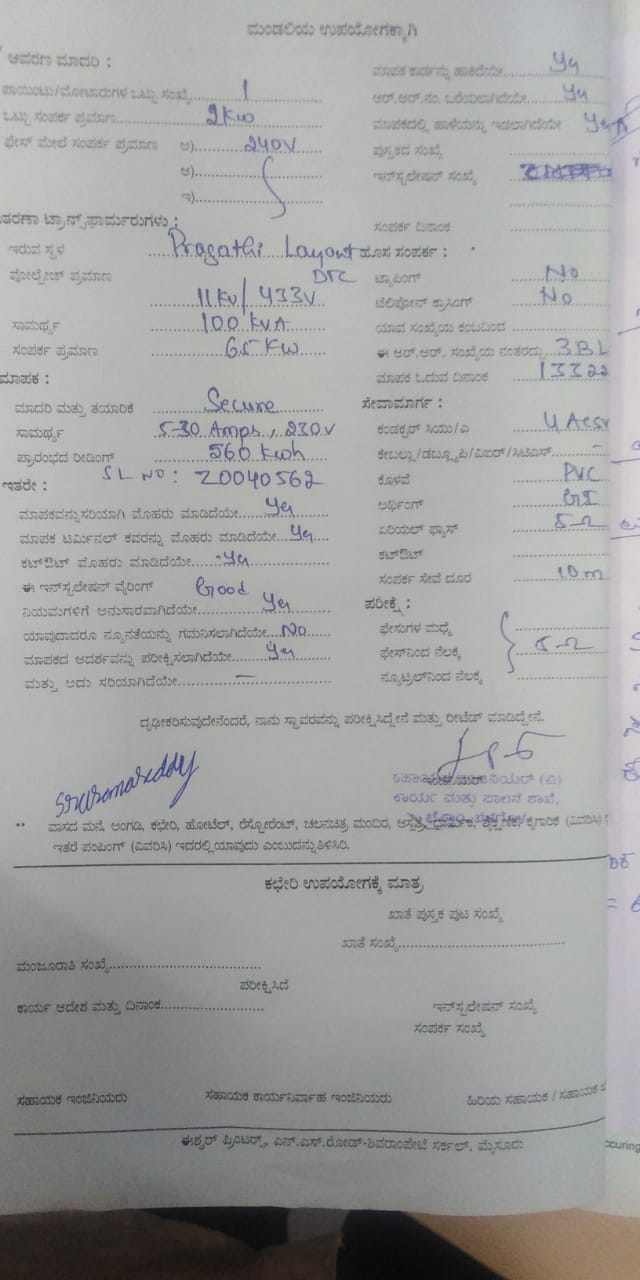 ಮಂಡಲಿಯ ಉಪಯೋಗಕ್ಕಾಗಿ
ಆವರಣ ಮಾದರಿ :
ಮಾಪಕ ಕಾರ್ಡನ್ನು ಹಾಕಿದೆಯೇ..... Yes
ಪಾಯಿಂಟು/ಮೋಟಾರುಗಳ ಒಟ್ಟು ಸಂಖ್ಯೆ..... 1
ಆರ್.ಆರ್.ನಂ. ಬರೆಯಲಾಗಿದೆಯೇ..... Yes
ಒಟ್ಟು ಸಂಪರ್ಕ ಪ್ರಮಾಣ..... 2Kw
ಮಾಪಕದಲ್ಲಿ ಹಾಳೆಯನ್ನು ಇಡಲಾಗಿದೆಯೇ Yes
ಫೇಸ್ ಮೇಲೆ ಸಂಪರ್ಕ ಪ್ರಮಾಣ ಅ) 240V
ಪುಸ್ತಕದ ಸಂಖ್ಯೆ
ಆ)
ಇನ್‌ಸ್ಟಲೇಷನ್ ಸಂಖ್ಯೆ
ಇ)
ಸಂಪರ್ಕ ದಿನಾಂಕ
ಟ್ರಾನ್ಸ್‌ಫಾರ್ಮರುಗಳು :
ಇರುವ ಸ್ಥಳ Pragathi Layout DTC
ಹೊಸ ಸಂಪರ್ಕ :
ವೋಲ್ಟೇಜ್ ಪ್ರಮಾಣ 11Kv/433V
ಟ್ಯಾಪಿಂಗ್ No
ಟೆಲಿಫೋನ್ ಕ್ರಾಸಿಂಗ್ No
ಸಾಮರ್ಥ್ಯ 100 KVA
ಯಾವ ಸಂಖ್ಯೆಯ ಕಂಬದಿಂದ
ಸಂಪರ್ಕ ಪ್ರಮಾಣ 65 Kw
ಈ ಆರ್.ಆರ್. ಸಂಖ್ಯೆಯ ನಂತರದ್ದು 3BL
ಮಾಪಕ :
ಮಾಪಕ ಓದುವ ದಿನಾಂಕ 13322
ಮಾದರಿ ಮತ್ತು ತಯಾರಿಕೆ Secure
ಸೇವಾಮಾರ್ಗ :
ಸಾಮರ್ಥ್ಯ 5-30 Amps, 230V
ಕಂಡಕ್ಟರ್ ಸಿಯು/ಎ
ಪ್ರಾರಂಭದ ರೀಡಿಂಗ್ 560 Kwh
ಕೇಬಲ್ಲು/ಡಬ್ಲ್ಯೂಪಿ/ವಿಐಆರ್/ಸಿಟಿಎಸ್..... -
SL NO: Z0040562
ಕೊಳವೆ PVC
ಇತರೇ :
ಅರ್ಥಿಂಗ್ GI
ಮಾಪಕವನ್ನು ಸರಿಯಾಗಿ ಮೊಹರು ಮಾಡಿದೆಯೇ..... Yes
ಏರಿಯಲ್ ಫ್ಯೂಸ್ 5Ω
ಮಾಪಕ ಟರ್ಮಿನಲ್ ಕವರನ್ನು ಮೊಹರು ಮಾಡಿದೆಯೇ..... Yes
ಕಟ್‌ಔಟ್
ಕಟ್‌ಔಟ್ ಮೊಹರು ಮಾಡಿದೆಯೇ..... Yes
ಸಂಪರ್ಕ ಸೇವೆ ದೂರ 10m
ಈ ಇನ್‌ಸ್ಟಲೇಷನ್ ವೈರಿಂಗ್ Good
ನಿಯಮಗಳಿಗೆ ಅನುಸಾರವಾಗಿದೆಯೇ..... Yes
ಪರೀಕ್ಷೆ :
ಯಾವುದಾದರೂ ನ್ಯೂನತೆಯನ್ನು ಗಮನಿಸಲಾಗಿದೆಯೇ..... No
ಫೇಸುಗಳ ಮಧ್ಯೆ
ಮಾಪಕದ ಆದರ್ಶವನ್ನು ಪರೀಕ್ಷಿಸಲಾಗಿದೆಯೇ..... Yes
ಫೇಸ್‌ನಿಂದ ನೆಲಕ್ಕೆ 5Ω
ಮತ್ತು ಅದು ಸರಿಯಾಗಿದೆಯೇ..... -
ನ್ಯೂಟ್ರಲ್‌ನಿಂದ ನೆಲಕ್ಕೆ
ದೃಢೀಕರಿಸುವುದೇನೆಂದರೆ, ನಾನು ಸ್ಥಾವರವನ್ನು ಪರೀಕ್ಷಿಸಿದ್ದೇನೆ ಮತ್ತು ರೀಟೆಡ್ ಮಾಡಿದ್ದೇನೆ.
** ವಾಸದ ಮನೆ, ಅಂಗಡಿ, ಕಛೇರಿ, ಹೋಟೆಲ್, ರೆಸ್ಟೋರೆಂಟ್, ಚಲನಚಿತ್ರ ಮಂದಿರ, ಆಸ್ಪತ್ರೆ, ಧಾರ್ಮಿಕ, ಶೈಕ್ಷಣಿಕ, ಕೈಗಾರಿಕೆ (ವಿವರಿಸಿ)
ಇತರೆ ಪಂಪಿಂಗ್ (ವಿವರಿಸಿ) ಇದರಲ್ಲಿ ಯಾವುದು ಎಂಬುದನ್ನು ತಿಳಿಸಿರಿ.
ಕಛೇರಿ ಉಪಯೋಗಕ್ಕೆ ಮಾತ್ರ
ಖಾತೆ ಪುಸ್ತಕ ಪುಟ ಸಂಖ್ಯೆ
ಖಾತೆ ಸಂಖ್ಯೆ.....
ಮಂಜೂರಾತಿ ಸಂಖ್ಯೆ.....
ಪರೀಕ್ಷಿಸಿದೆ
ಕಾರ್ಯ ಆದೇಶ ಮತ್ತು ದಿನಾಂಕ.....
ಇನ್‌ಸ್ಟಲೇಷನ್ ಸಂಖ್ಯೆ
ಸಂಪರ್ಕ ಸಂಖ್ಯೆ
ಸಹಾಯಕ ಇಂಜಿನಿಯರು ಸಹಾಯಕ ಕಾರ್ಯನಿರ್ವಾಹ ಇಂಜಿನಿಯರು ಹಿರಿಯ ಸಹಾಯಕ / ಸಹಾಯಕ
ಈಶ್ವರ್ ಪ್ರಿಂಟರ್ಸ್, ಎನ್.ಎಸ್.ರೋಡ್-ಶಿವರಾಂಪೇಟೆ ಸರ್ಕಲ್, ಮೈಸೂರು